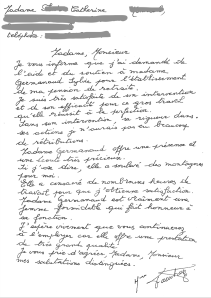 Madame Catherine
téléphone :
Madame, Monsieur
Je vous informe que j'ai demandé de
l'aide et du soutien à madame
Germanaud Sylvie pour l'établissement
de ma pension de retraite.
Je suis très satisfaite de son intervention
et de son efficacité pour ce gros travail
qu'elle réussit à la perfection.
Sans son intervention, sa rigueur dans
ses actions je n'aurais pas eu beaucoup
de rétribution.
Madame Germanaud offre une présence et
une écoute très précieux.
Si j'ose dire, elle a soulevé des montagnes
pour moi.
Elle a consacré de nombreuses heures de
travail pour que j'obtienne satisfaction.
Madame Germanaud est vraiment une
femme formidable qui fait honneur à
sa fonction.
J'espère vivement que vous continuerez
à l'employer car elle offre une prestation
de très grande qualité.
Je vous prie d'agréer Madame, Monsieur
mes salutations distinguées.
Mme